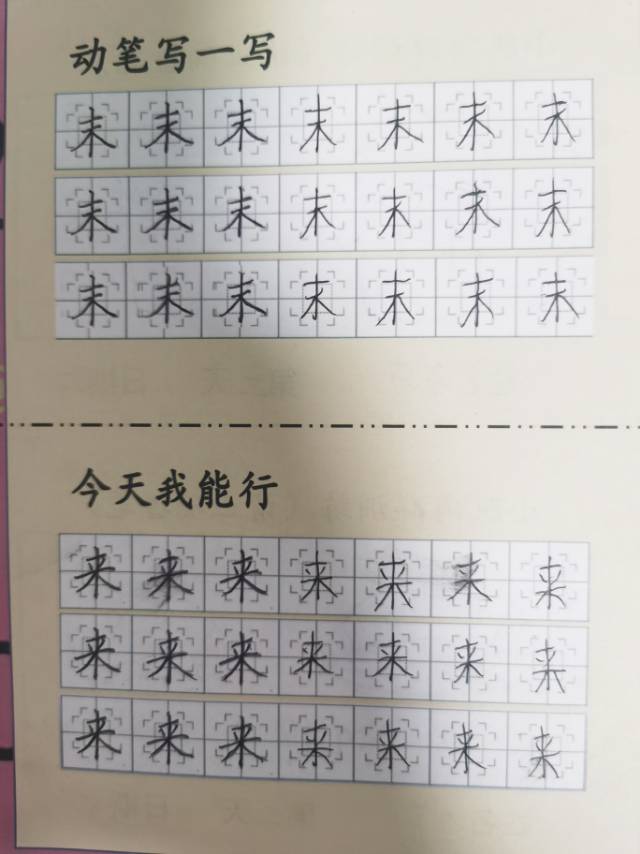 动笔写一写
末末末末末末末
末末末末末末末
末末末末末末末
今天我能行
来来来来来来来
来来来来来来来
来来来来来来来